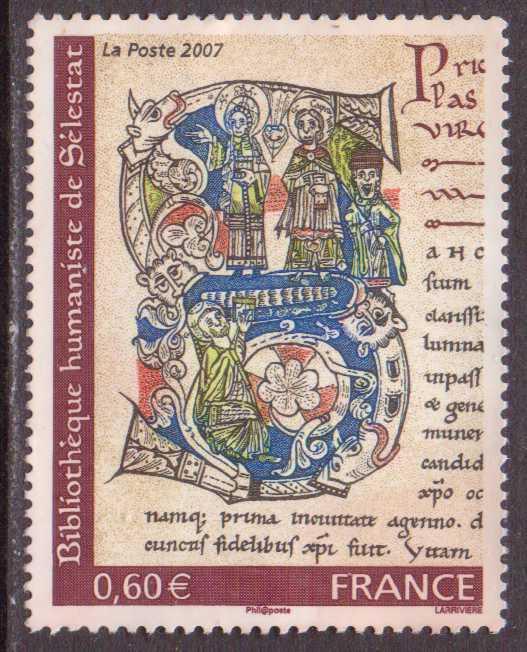 La Poste 2007
Bibliothèque humaniste de Sélestat
Pric
las
VIRG
A H C
sium
clarissi
lumna
inpass
& gene
muner
candid
xpo oc
namq; prima inouitate agenno. d
cunctis fidelibus xpi fuit. Vitam
0,60€ FRANCE
Phil@poste LARRIVIÈRE